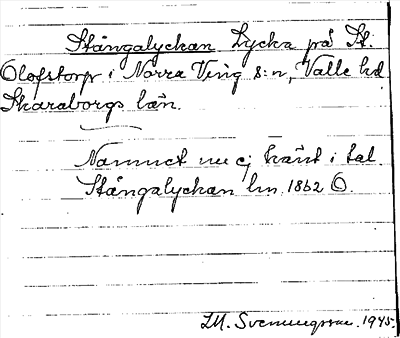 Stångalyckan Lycka på St.
Olofstorp i Norra Ving s:n, Valle hd
Skaraborgs län.
Namnet nu ej känt i tal.
Stångalyckan lm. 1862 Ö.
Svenungsson. 1945.